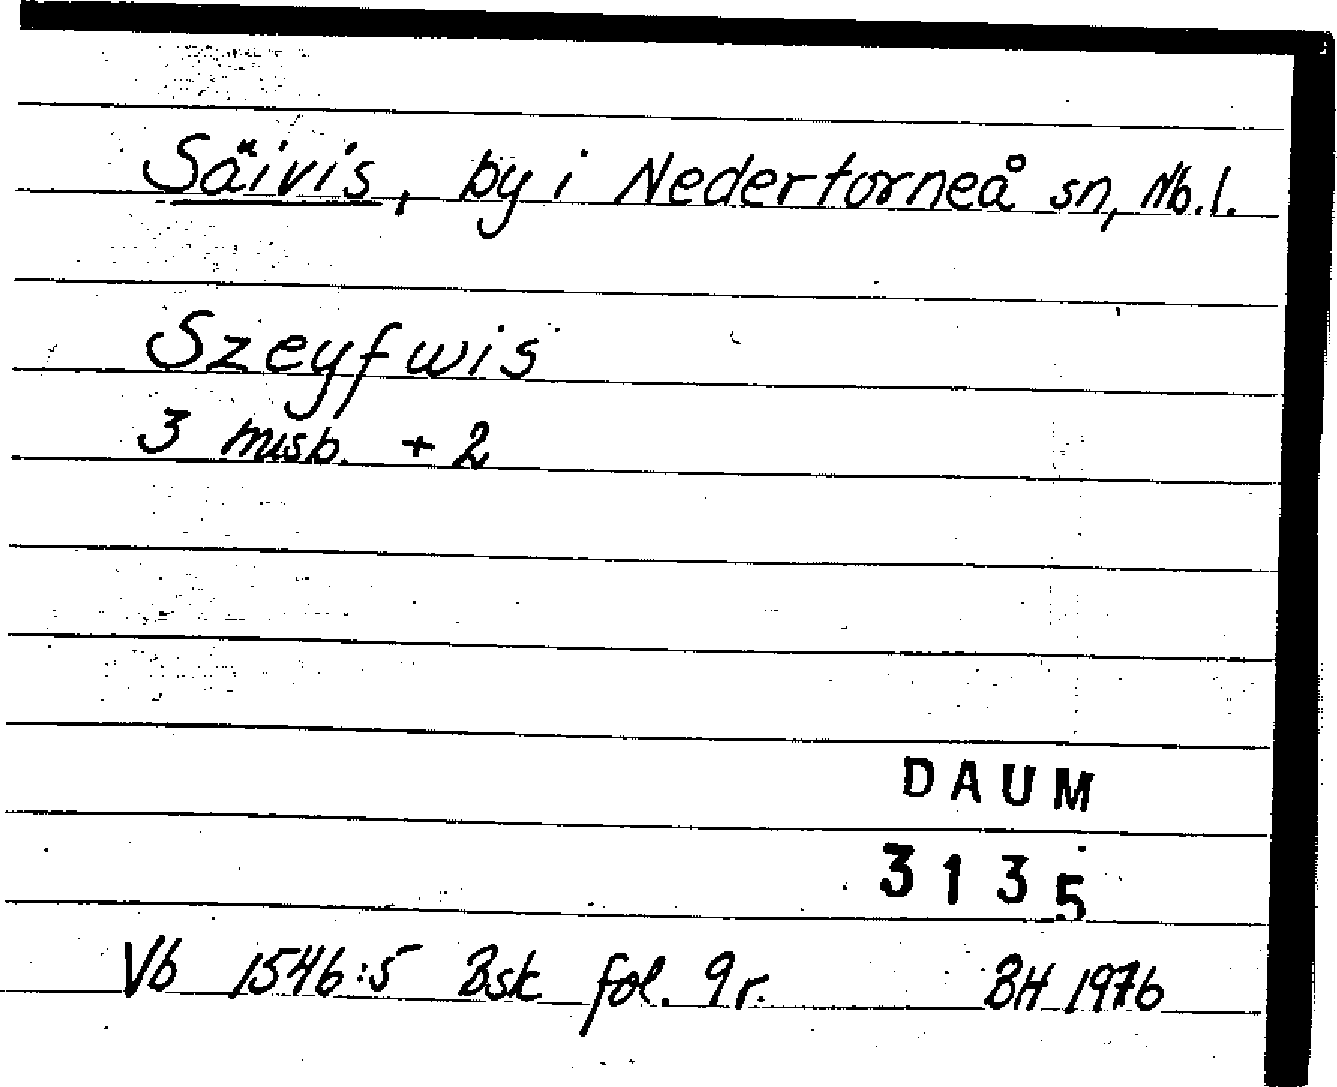 Säivis, by i Nedertorneå sn, Nb.l.
Szeyfwis
3 misb. + 2
DAUM
3135
Vb 1546:5 Bsk fol. 9r. BH 1976